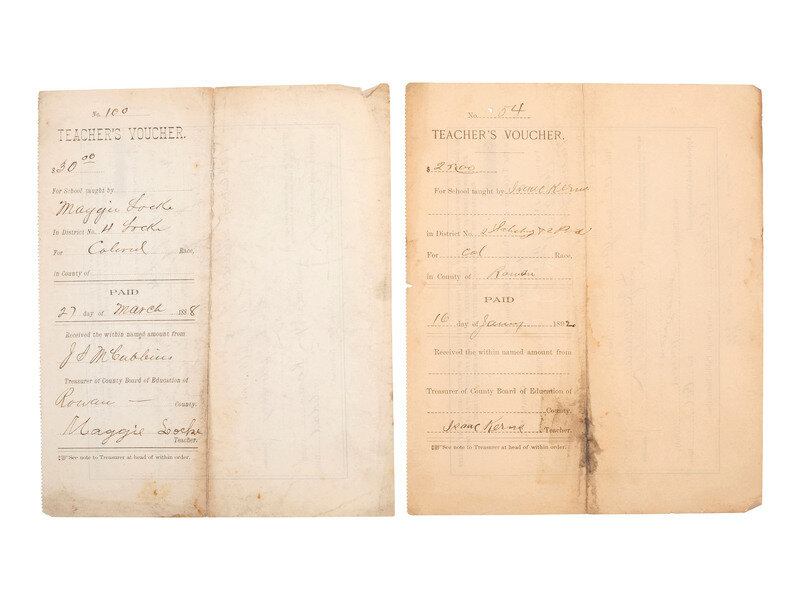 No. 100
TEACHER'S VOUCHER.
$30.00
For School taught by
Maggie Locke
In District No. 4 Locke
For Colored Race,
in County of
PAID
27 day of March 1888
Received the within named amount from
J S McCubbins
Treasurer of County Board of Education of
Rowan — County.
Maggie Locke
Teacher.
See note to Treasurer at head of within order.
No. 54
TEACHER'S VOUCHER.
$25.00
For School taught by Isaac Kerns
in District No. 4
For Col Race,
in County of Rowan
PAID
16 day of Jany 1892
Received the within named amount from
Treasurer of County Board of Education of
County.
Isaac Kerns Teacher.
See note to Treasurer at head of within order.